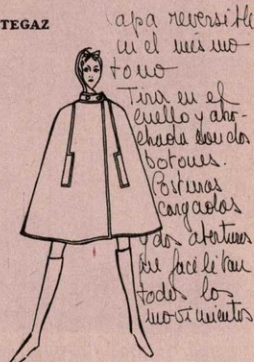 TEGAZ
Capa reversible
en el mismo
tono
Tira en el
cuello y abro-
chada con dos
botones.
Costuras
cargadas
y dos aberturas
que facilitan
todos los
movimientos